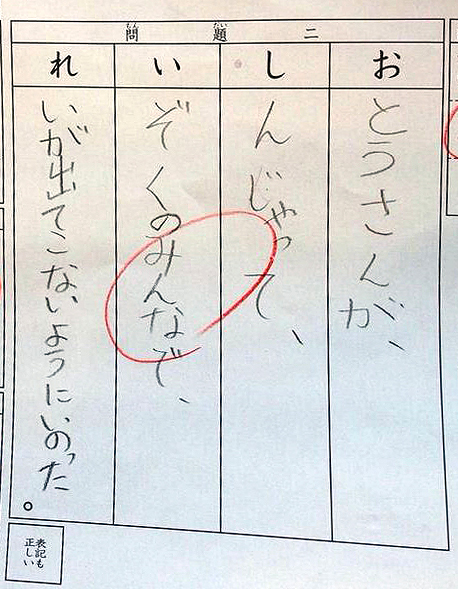 問題二
もんだい
お とうさんが、
し んじゃって、
い ぞくのみんなで、
れ いが出てこないようにいのった。
表記も
正しい